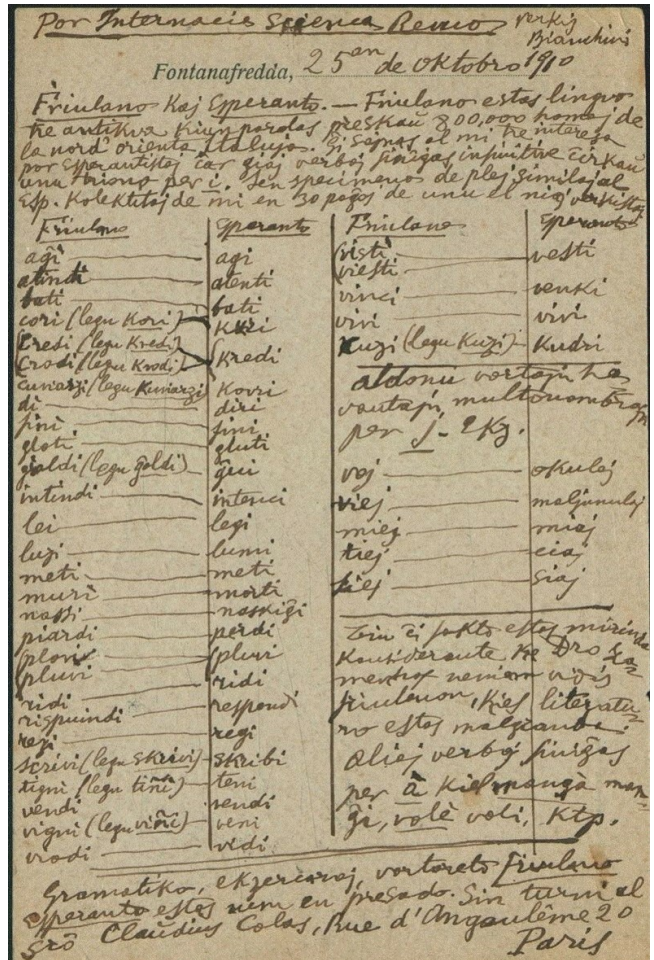 Por Internacia Scienca Revuo
verkis Bianchini
Fontanafredda, 25an de Oktobro 1910
Friulano kaj Esperanto. — Friulano estas lingvo
tre antikva kiun parolas preskaŭ 800,000 homoj de
la nord'orienta Italujo. Ĝi ŝajnas al mi tre interesa
por Esperantistoj ĉar ĝiaj verboj finiĝas infinitive ĉirkaŭ
unu triono per i. Jen specimenoj de plej similaj al
Esp. kolektitaj de mi en 30 paĝoj de unu el niaj verkistoj
Friulano Esperanto
aĝi agi
atindi atenti
bati bati
cori (legu Kori) kuri
credi (legu Kredi)
crodi (legu Krodi) kredi
cuviarzi (legu Kuviarzi) kovri
di diri
finì fini
gloti gluti
goldi (legu ĝoldi) ĝui
intindi intenci
lei legi
luzi lumi
meti meti
muri morti
nassi naskiĝi
piardi perdi
plovi
pluvi pluvi
ridi ridi
rispuindi respondi
regi regi
scrivi (legu skrivi) skribi
tigni (legu tiñi) teni
vendi vendi
vigni (legu viñi) veni
viodi vidi
Friulano Esperanto
visti
viesti vesti
vinci venki
vivi vivi
cuzi (legu Kuzi) kudri
aldonu vortojn ha-
vantajn multonombron
per j - Ekz.
voj okuloj
viej maljunuloj
miej miaj
tiej ciaj
siej siaj
Tiu ĉi fakto estas mirinda
konsiderante, ke Dro Za-
menhof neniam vidis
friulanon, kies literatu-
ro estas malgranda.
Aliaj verboj finiĝas
per â kiel mangâ man-
ĝi, volè voli, ktp.
Gramatiko, ekzercaroj, vortareto Friulano
Esperanto estas nun en presado. Sin turni al
Sro Claudius Colas, Rue d'Angoulême 20
Paris